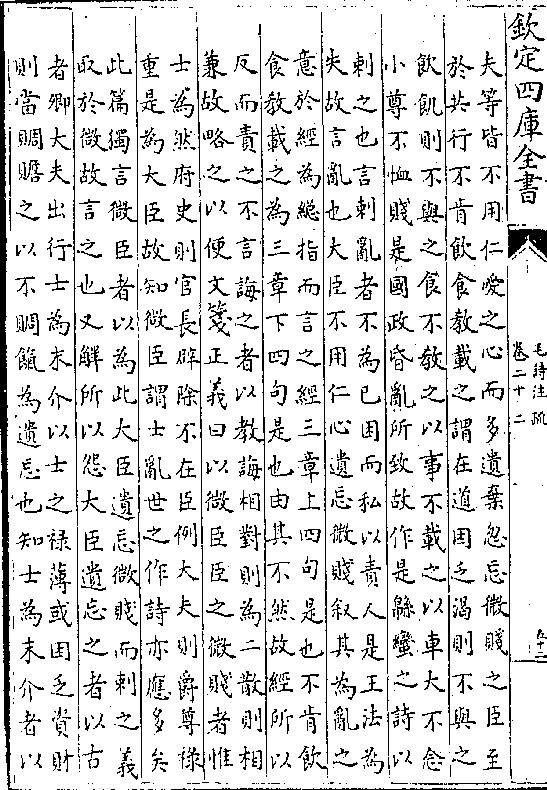 欽定四庫全書
毛詩注疏
卷二十二
夫等皆不用仁愛之心而多遺棄忽忘微賤之臣至
於共行不肯飲食教載之謂在道困乏渴則不與之
飲飢則不與之食不教之以事不載之以車大不念
小尊不恤賤是國政昏亂所致故作是緜蠻之詩以
刺之也言刺亂者不為已困而私以責人是王法為
失故言亂也大臣不用仁心遺忘微賤叙其為亂之
意於經為緫指而言之經三章上四句是也不肯飲
食教載之為三章下四句是也由其不然故經所以
反而責之不言誨之者以教誨相對則為二散則相
兼故略之以便文箋正義曰以微臣臣之微賤者惟
士為然府史則官長辟除不在臣例大夫則爵尊禄
重是為大臣故知微臣謂士亂世之作詩亦應多矣
此篇獨言微臣者以為此大臣遺忘微賤而刺之義
取於微故言之也又解所以怨大臣遺忘之者以古
者卿大夫出行士為末介以士之禄薄或困乏資財
則當賙贍之以不賙餼為遺忘也知士為末介者以